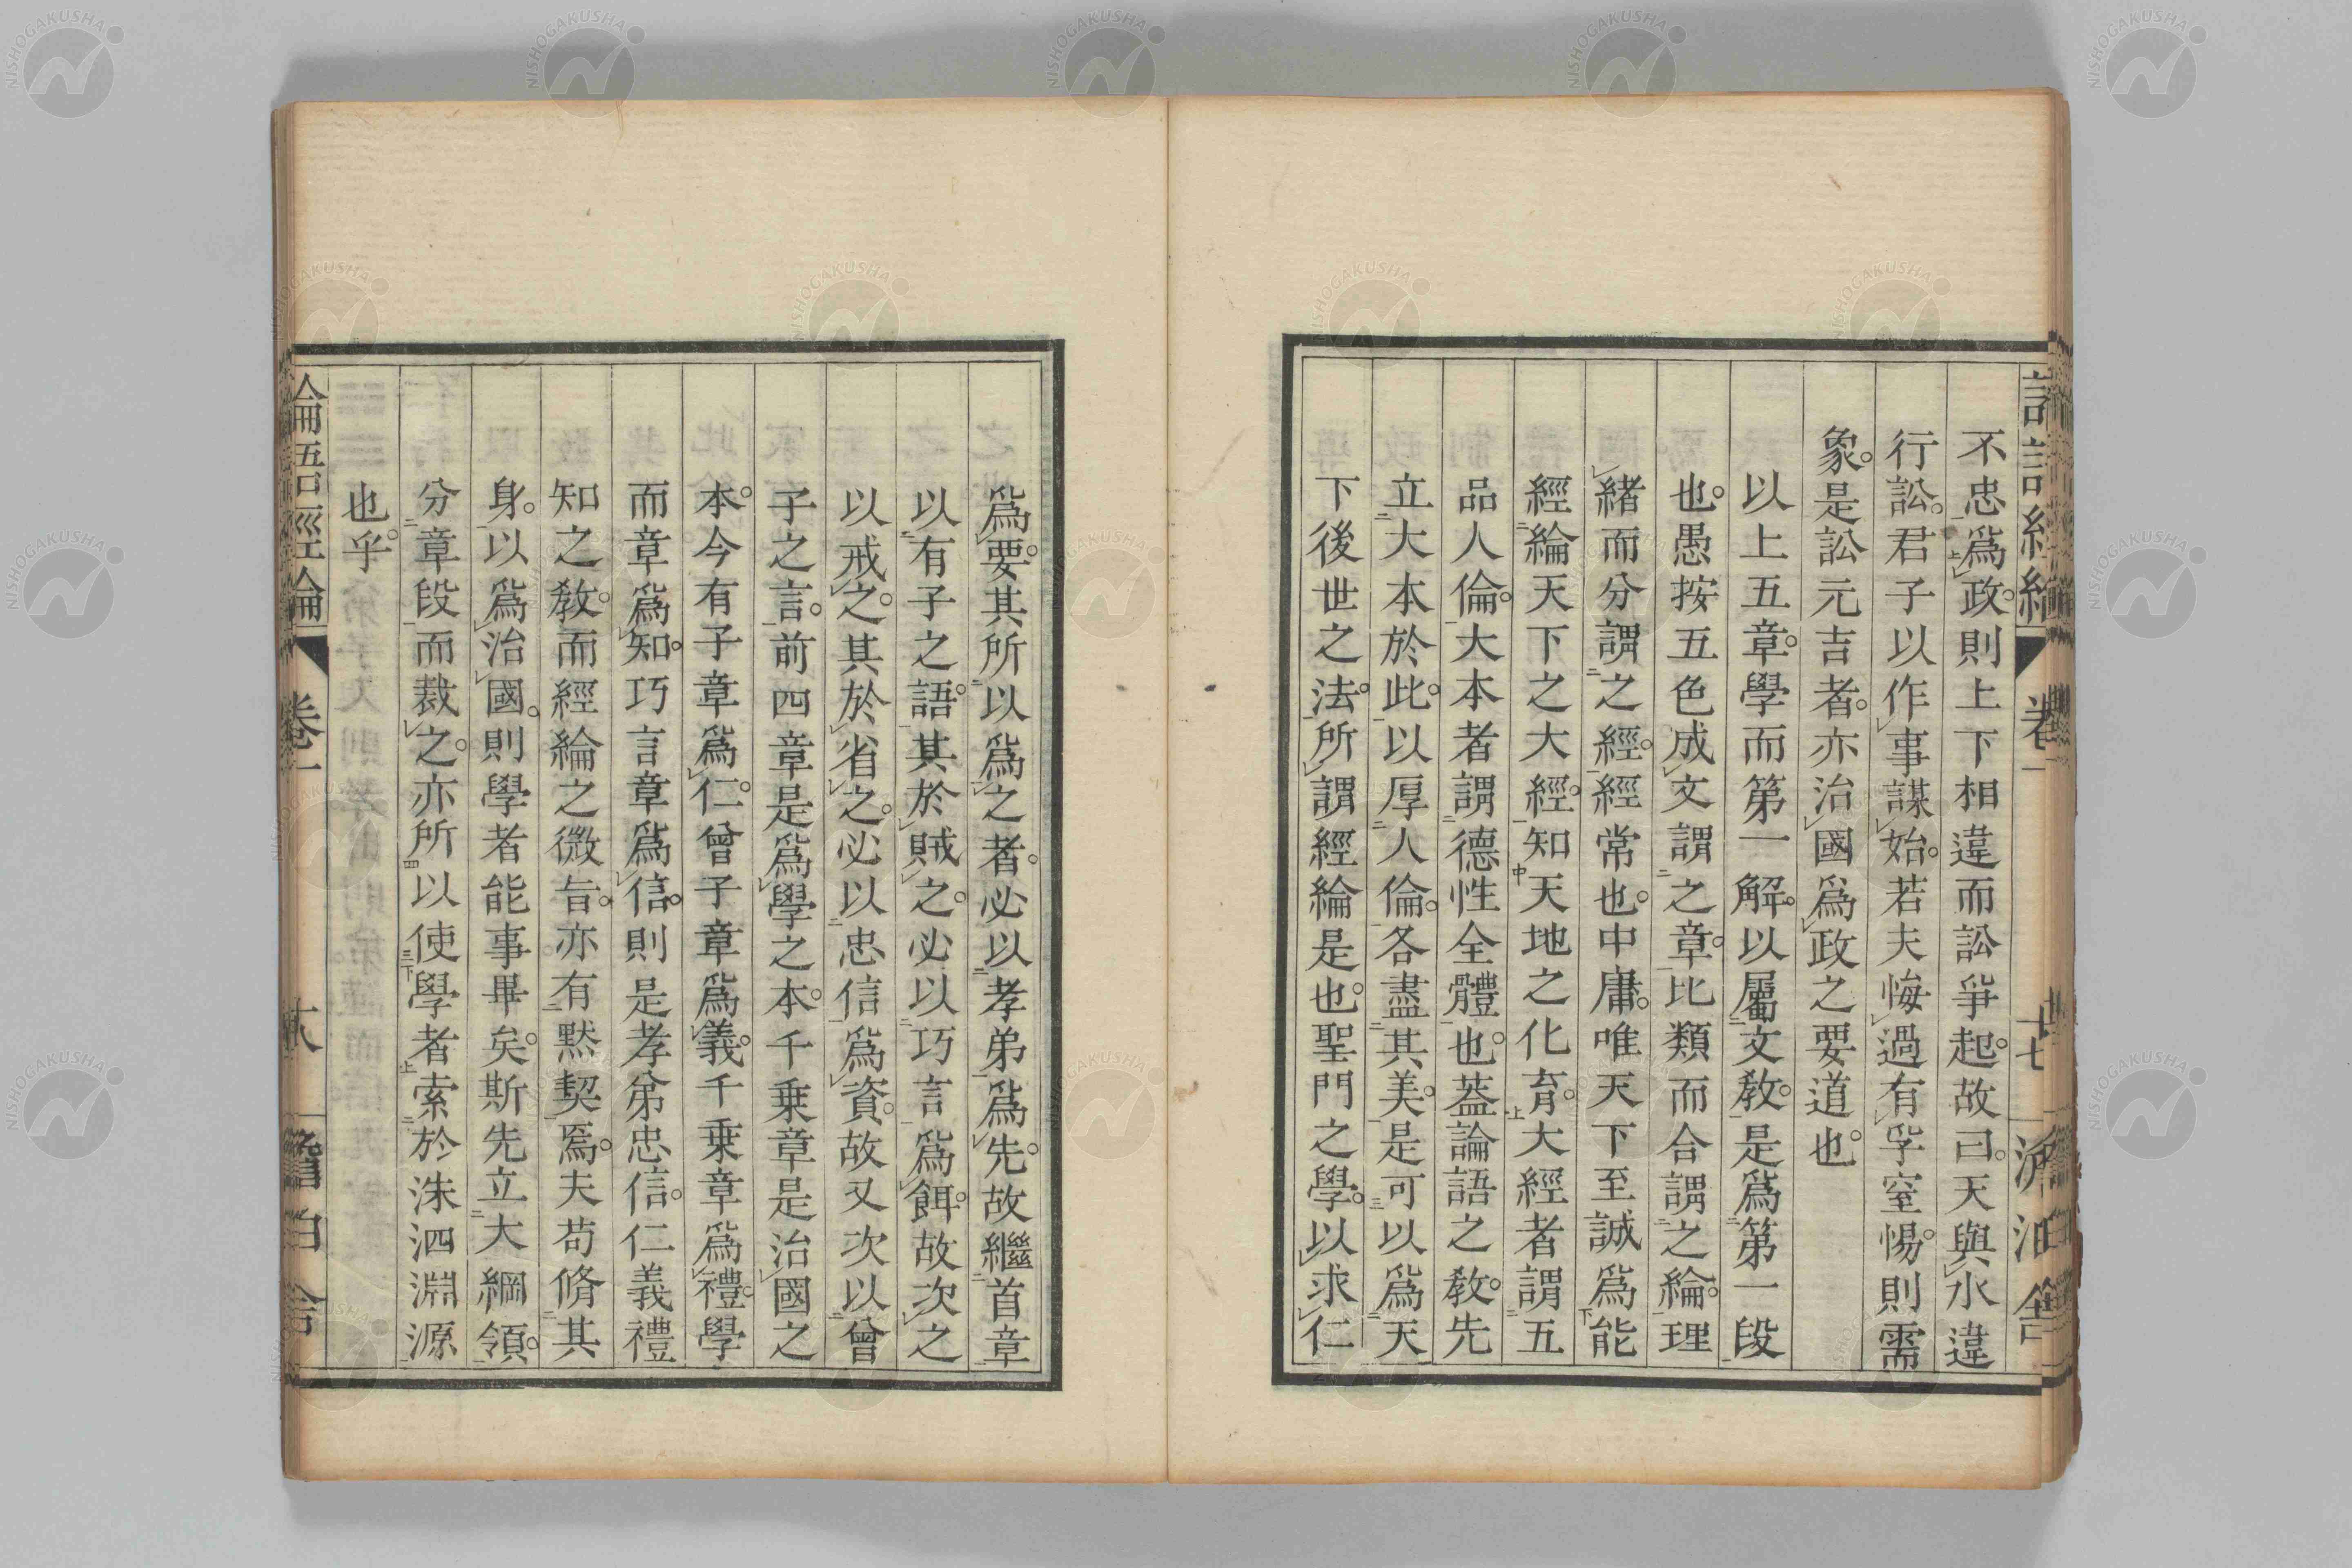 不忠爲政。則上下相違而訟爭起。故曰。天與水違
行訟。君子以作事謀始。若夫悔過有孚窒惕。則需
象。是訟元吉者。亦治國爲政之要道也。
以上五章。學而第一解。以屬文教。是爲第一段
也。愚按五色成文謂之章。比類而合謂之綸。理
緒而分謂之經。經常也。中庸。唯天下至誠爲能
經綸天下之大經。知天地之化育。大經者謂五
品人倫。大本者謂德性全體也。蓋論語之教。先
立大本於此。以厚人倫。各盡其美。是可以爲天
下後世之法。所謂經綸是也。聖門之學。以求仁
爲要。其所以爲之者。必以孝弟爲先。故繼首章
以有子之語。其於賊之。必以巧言爲餌。故次之
以戒之。其於省之。必以忠信爲資。故又次以曾
子之言。前四章是爲學之本。千乗章是治國之
本。今有子章爲仁。曾子章爲義。千乗章爲禮。學
而章爲知。巧言章爲信。則是孝弟忠信。仁義禮
知之教。而經綸之微旨。亦有黙契焉。夫苟脩其
身。以爲治國。則學者能事畢矣。斯先立大綱領。
分章段而裁之。亦所以使學者索於洙泗淵源
也乎。
論語經綸
卷一
十八